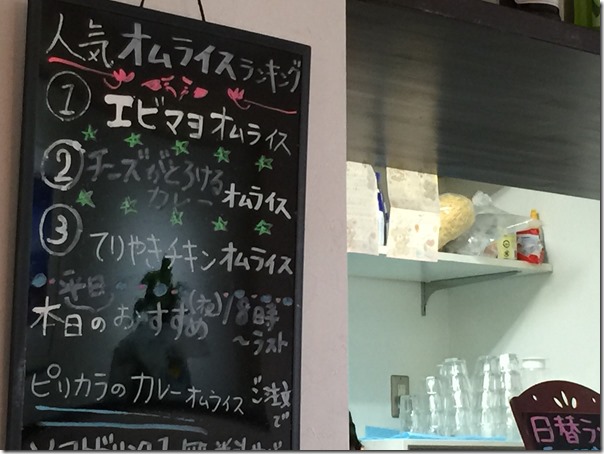 人気オムライスランキング
① エビマヨオムライス
② チーズがとろける
カレーオムライス
③ てりやきチキンオムライス
平日
本日のおすすめ(夜)18時
〜ラスト
ピリカラのカレーオムライスご注文で
ソフトドリンク1
日替ラ